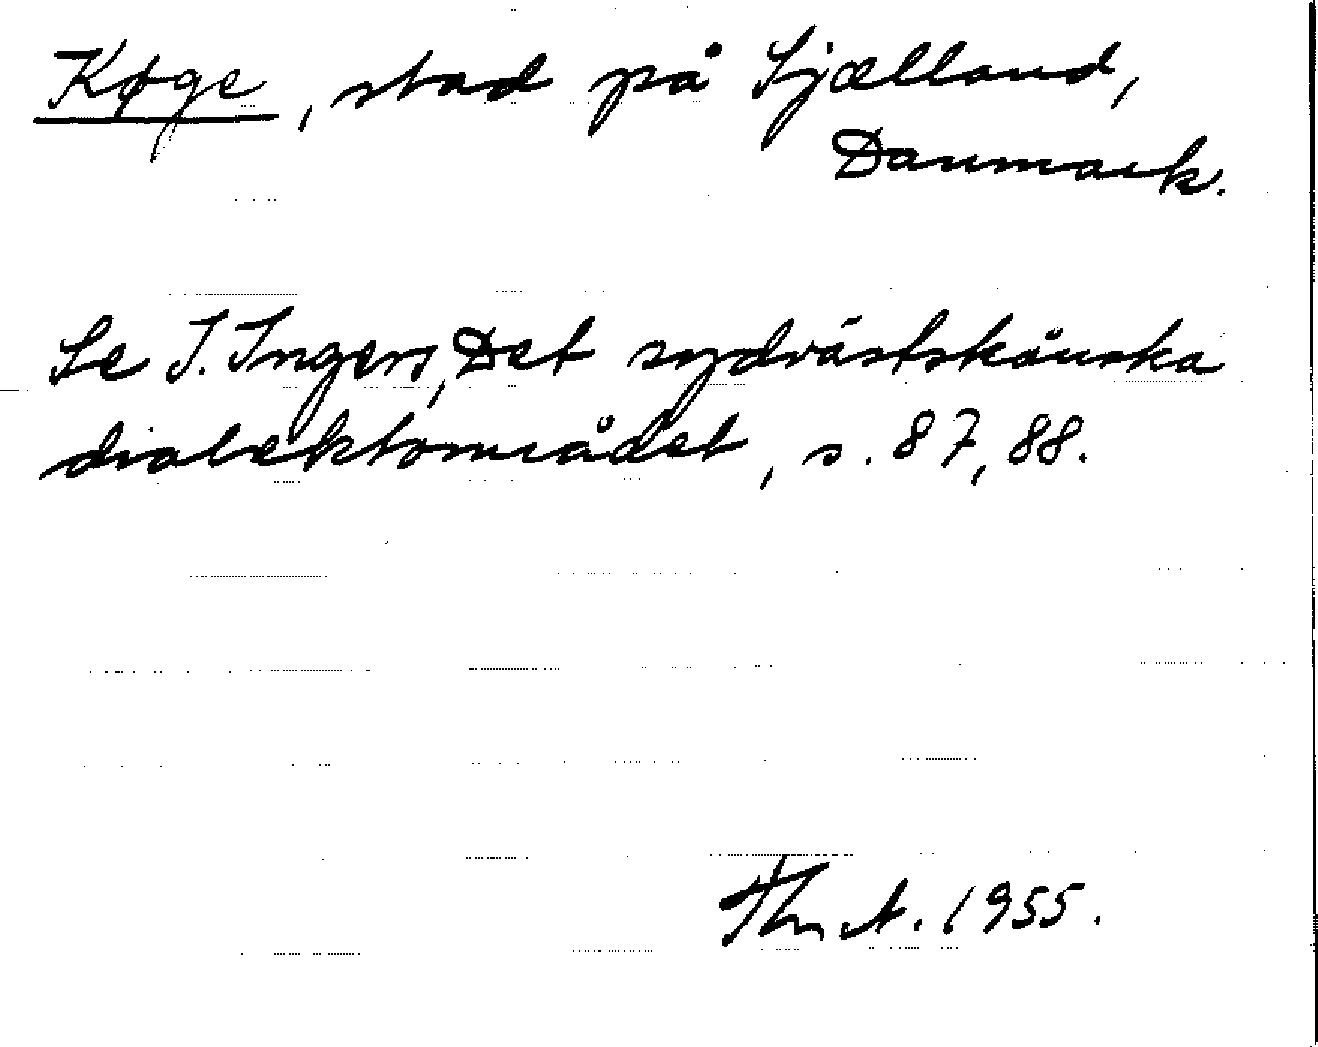 Køge, stad på Sjælland,
Danmark.
Se I. Ingers, Det sydvästskånska
dialektområdet, s. 87, 88.
1955.